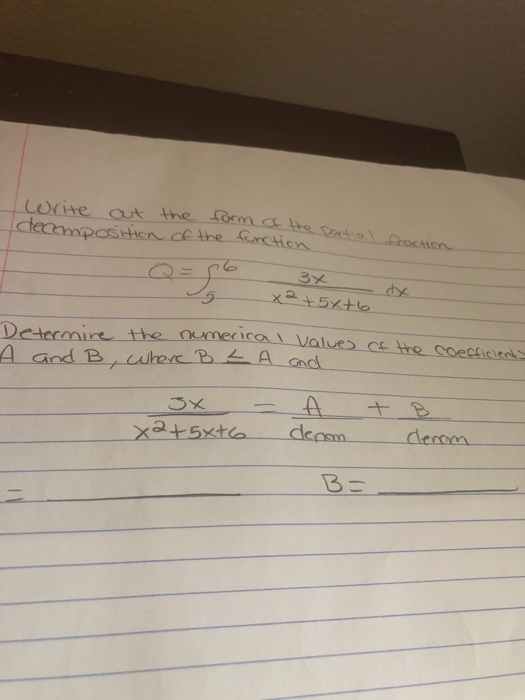 Write out the form of the partial fraction
decomposition of the function
Q = ∫₅⁶ 3x / (x² + 5x + 6) dx
Determine the numerical values of the coefficients
A and B, where B ≤ A and
3x / (x² + 5x + 6) = A / denom + B / denom
= ________ B = ________